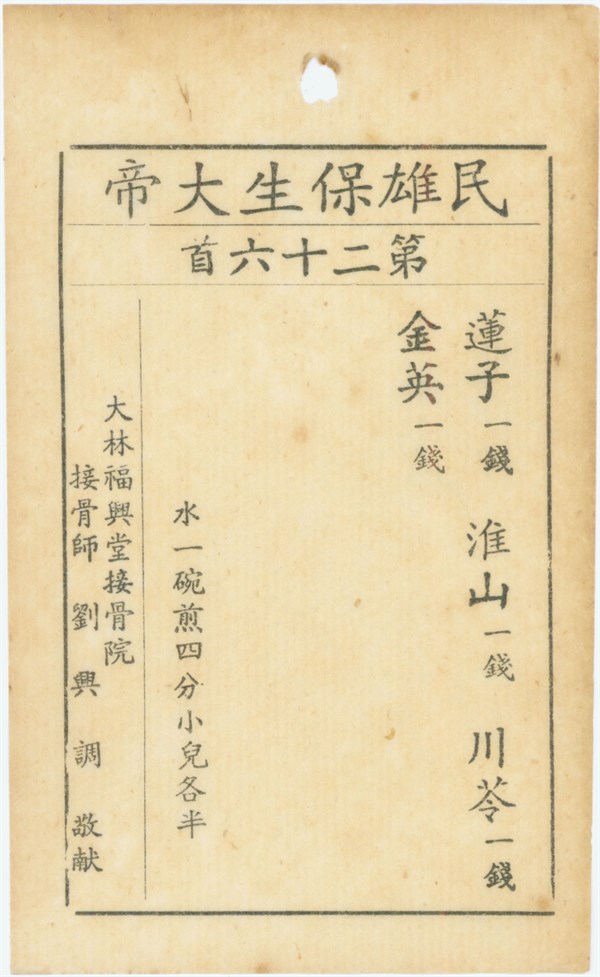 民雄保生大帝
第二十六首
蓮子一錢 淮山一錢 川苓一錢
金英一錢
水一碗煎四分小兒各半
大林福興堂接骨院
接骨師 劉興調 敬献